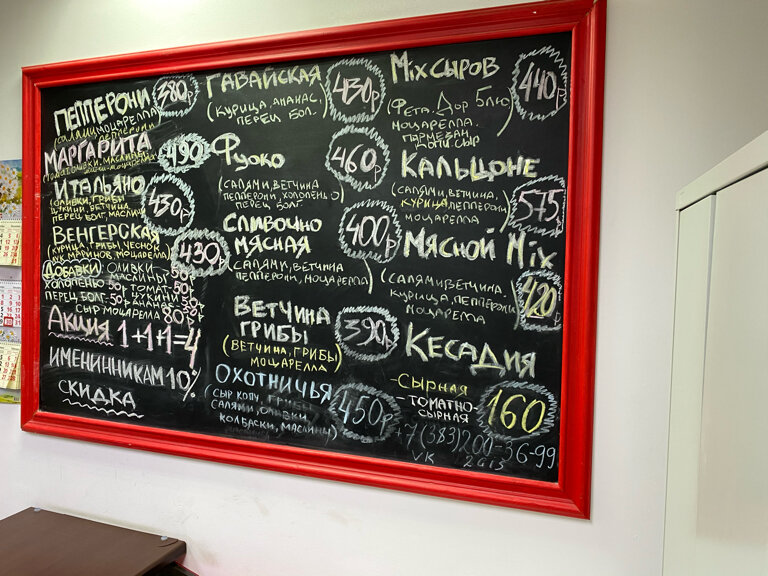 ПЕППЕРОНИ 380р
(САЛЯМИ, ПЕППЕРОНИ
МОЦАРЕЛЛА)
МАРГАРИТА 490
МОЦАРЕЛЛА)
ИТАЛЬЯНО 430р
(ОЛИВКИ, ГРИБЫ
ЦУКИНИ, ВЕТЧИНА
ПЕРЕЦ БОЛГ, МАСЛИНЫ
ВЕНГЕРСКАЯ 430р
(КУРИЦА, ГРИБЫ, ЧЕСНОК
ЛУК МАРИНОВ, МОЦАРЕЛЛА)
ДОБАВКИ: ОЛИВКИ- 50р
МАСЛИНЫ 50р
ХОЛОПЕНЬО 50р ТОМАТ- 50р
ПЕРЕЦ БОЛГ- 50р ЦУКИНИ 50р
АНАНАС 50р
СЫР МОЦАРЕЛЛА 80р
АКЦИЯ 1+1+1=4
ИМЕНИННИКАМ 10%
СКИДКА
ГАВАЙСКАЯ 430р
(КУРИЦА, АНАНАС,
ПЕРЕЦ БОЛ.
Фуоко 460р
(САЛЯМИ, ВЕТЧИНА
ПЕППЕРОНИ, ХОЛОПЕНЬО)
ПЕРЕЦ БОЛГ.
СЛИВОЧНО
МЯСНАЯ 400р
(САЛЯМИ, ВЕТЧИНА
ПЕППЕРОНИ, МОЦАРЕЛЛА)
ВЕТЧИНА
ГРИБЫ 390р
(ВЕТЧИНА, ГРИБЫ
МОЦАРЕЛЛА)
ОХОТНИЧЬЯ 450р
(СЫР КОПЧ, ГРИБЫ
САЛЯМИ, ОЛИВКИ
КОЛБАСКИ, МАСЛИНЫ)
Mix СЫРОВ 440р
(ФЕТА. ДОР БЛЮ
МОЦАРЕЛЛА.
ПАРМЕЗАН,
ДОП. СЫР
КАЛЬЦОНЕ 575р
(САЛЯМИ, ВЕТЧИНА,
КУРИЦА, ПЕППЕРОНИ
МОЦАРЕЛЛА)
МЯСНОЙ Mix 420р
(САЛЯМИ, ВЕТЧИНА,
КУРИЦА, ПЕППЕРОНИ
МОЦАРЕЛЛА)
КЕСАДИЯ
-СЫРНАЯ 160
- ТОМАТНО-
СЫРНАЯ
+7(383)200-36-99
VK 2GIS